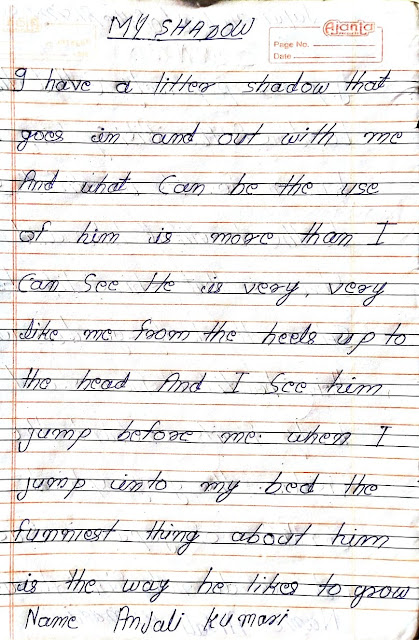 MY SHADOW
Ajanta
Page No.
Date
I have a litter shadow that
goes in and out with me
And what Can be the use
of him is more than I
Can See He is very, very
like me from the heels up to
the head And I See him
Jump before me. when I
Jump into my bed the
funniest thing about him
is the way he likes to grow
Name Anjali Kumari